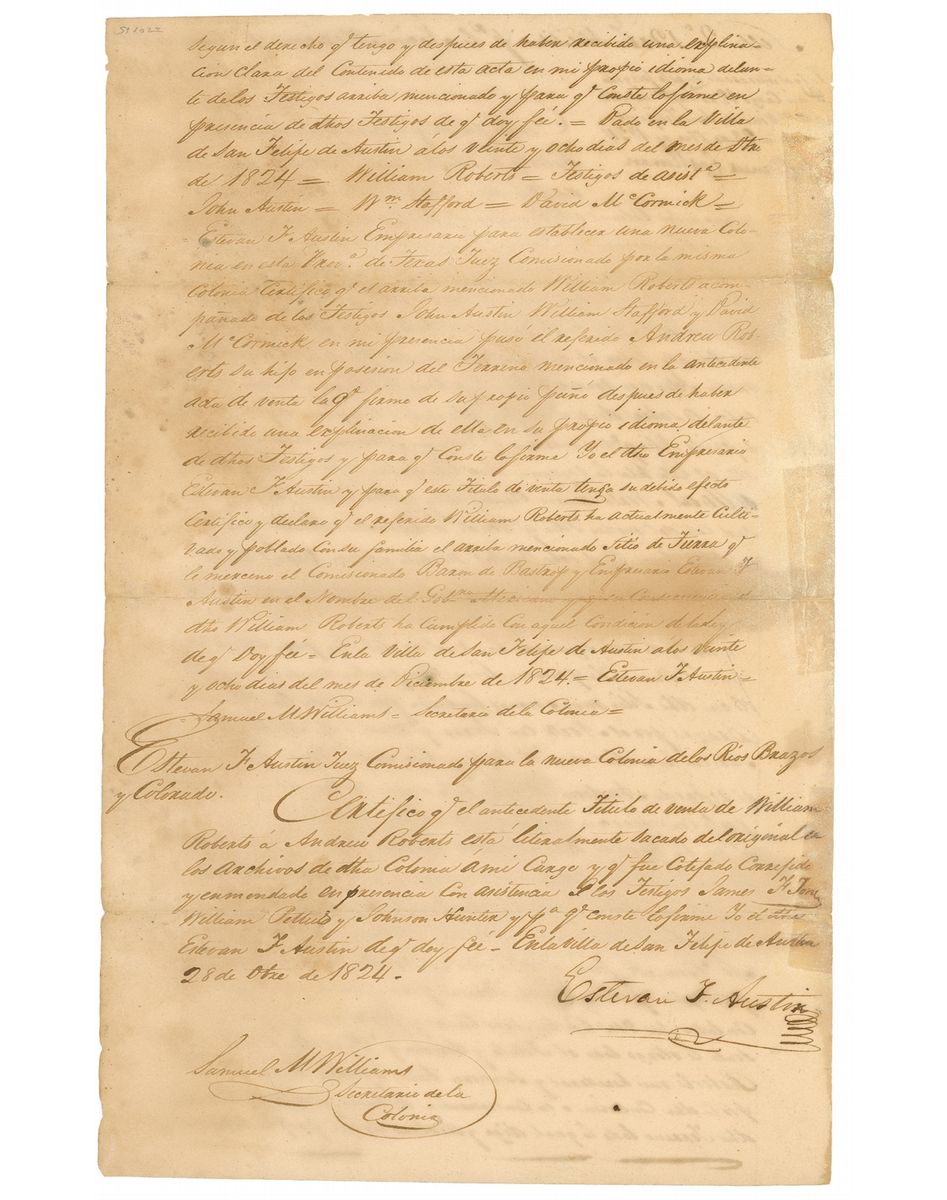 segun el derecho qe tengo y despues de haber recibido una explina-
cion clara del Contenido de esta acta en mi propio idioma delan-
te de los Testigos arriba mencionado y para qe Conste lo firme en
presencia de dhos Testigos de qe doy feé. = Dado en la Villa
de San Felipe de Austin álos veinte y ocho dias del mes de Dbre
de 1824 = William Roberts = Testigos de asista =
John Austin = Wm Stafford = David McCormick =
Estevan F Austin Empresario para establecer una nueva Colo-
nia en esta Prova de Texas Juez Comisionado por la misma
Colonia Certifico qe el arriba mencionado William Roberts acom-
pañado de los Testigos John Austin William Stafford y David
McCormick en mi presencia puso el referido Andrew Rob-
erts su hijo en posesion del Terreno mencionado en la antecedente
acta de venta la qe firmo de su propio puño despues de haber
recibido una esplinacion de ella en su propio idioma delante
de dhos Testigos y para qe Conste lo firme Yo el dho Empresario
Estevan F Austin y para qe este Titulo de venta tenga su debido efecto
Certifico y declaro qe el referido William Roberts ha actualmente Culti-
vado y poblado con su familia el arriba mencionado Sitio de Tierra qe
le merceno el Comisionado Baron de Bastrop y Empresario Estevan F
Austin en el Nombre del Gobno Mexicano y en Consecuencia el
dho William Roberts ha Cumplido Con aquel Condicion de la ley
de qe Doy feé = En la Villa de San Felipe de Austin a los veinte
y ocho dias del mes de Diciembre de 1824 = Estevan F Austin =
Samuel M Williams = Secretario de la Colonia =
Estevan F Austin Juez Comisionado para la nueva Colonia de los Rios Brazos
y Colorado.
Certifico qe el antecedente Titulo de venta de William
Roberts á Andrew Roberts está literalmente sacado del original en
los Archivos de dha Colonia á mi Cargo y qe fue Cotejado Correjido
y enmendado en presencia con asistencia de los Testigos James F
William Pettus y Johnson Hunter y pa qe conste lo firme Yo el dho
Estevan F Austin de qe doy feé = En la Villa de San Felipe de Austin
28 de Dbre de 1824 -
Estevan F. Austin
Samuel M Williams
Secretario de la
Colonia